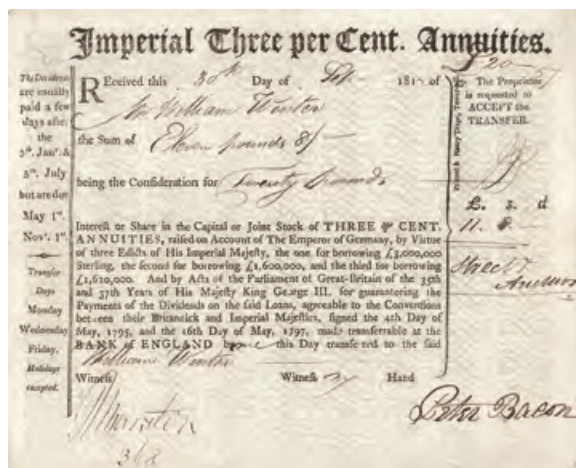 Imperial Three per Cent. Annuities.
£20
The Dividends
are usually
paid a few
days after
the
5th. Janr. &
5th. July
but are due
May 1st.
Novr. 1st.
Transfer
Days
Monday
Wednesday
Friday.
Holidays
excepted.
REceived this 30th Day of 181 of
Mr William Winter
the Sum of Eleven pounds 8/
being the Consideration for Twenty Pounds
Interest or Share in the Capital or Joint Stock of THREE ⅌ CENT.
ANNUITIES, raised on Account of The Emperor of Germany, by Virtue
of three Edicts of His Imperial Majesty, the one for borrowing £3,000,000
Sterling, the second for borrowing £1,600,000, and the third for borrowing
£1,620,000. And by Acts of the Parliament of Great-Britain of the 35th
and 37th Years of His Majesty King George III. for guaranteeing the
Payments of the Dividends on the said Loans, agreeable to the Conventions
between their Britannick and Imperial Majesties, signed the 4th Day of
May, 1795, and the 16th Day of May, 1797, made transferrable at the
BANK of ENGLAND by me this Day transferred to the said
William Winter
Witness Witness my Hand
Peter Bacon
368
The Proprietor
is requested to
ACCEPT the
TRANSFER.
£. s. d
11. 8